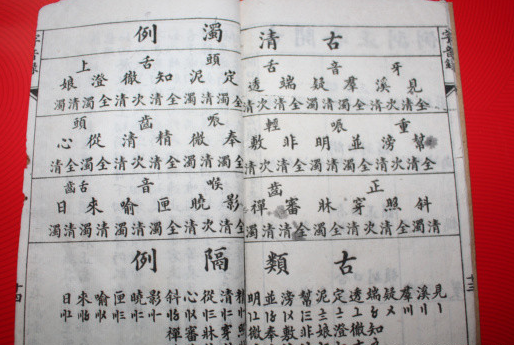 古清濁例
牙音舌頭舌上
見溪羣疑端透定泥知徹澄娘
全次全清全次全清全次全清
清清濁濁清清濁濁清清濁濁
重唇輕唇齒頭
幫滂並明非敷奉微精清從心
全次全清全次全清全次全全
清清濁濁清清濁濁清清濁清
正齒喉音舌齒
斜照穿牀審禪影曉匣喻來日
全全次全全全全次全清清清
濁清清濁清濁清清濁濁濁濁
古類隔例
見
溪
羣
疑
端知
透徹
定澄
泥娘
幫非
滂敷
並奉
明微
精照
清穿
從牀
心審
斜禪
影
曉
匣
喻
來
日
十三
十四